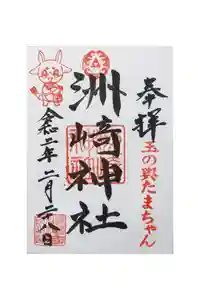 奉拝
玉の輿たまちゃん
洲崎神社
令和二年二月二八日